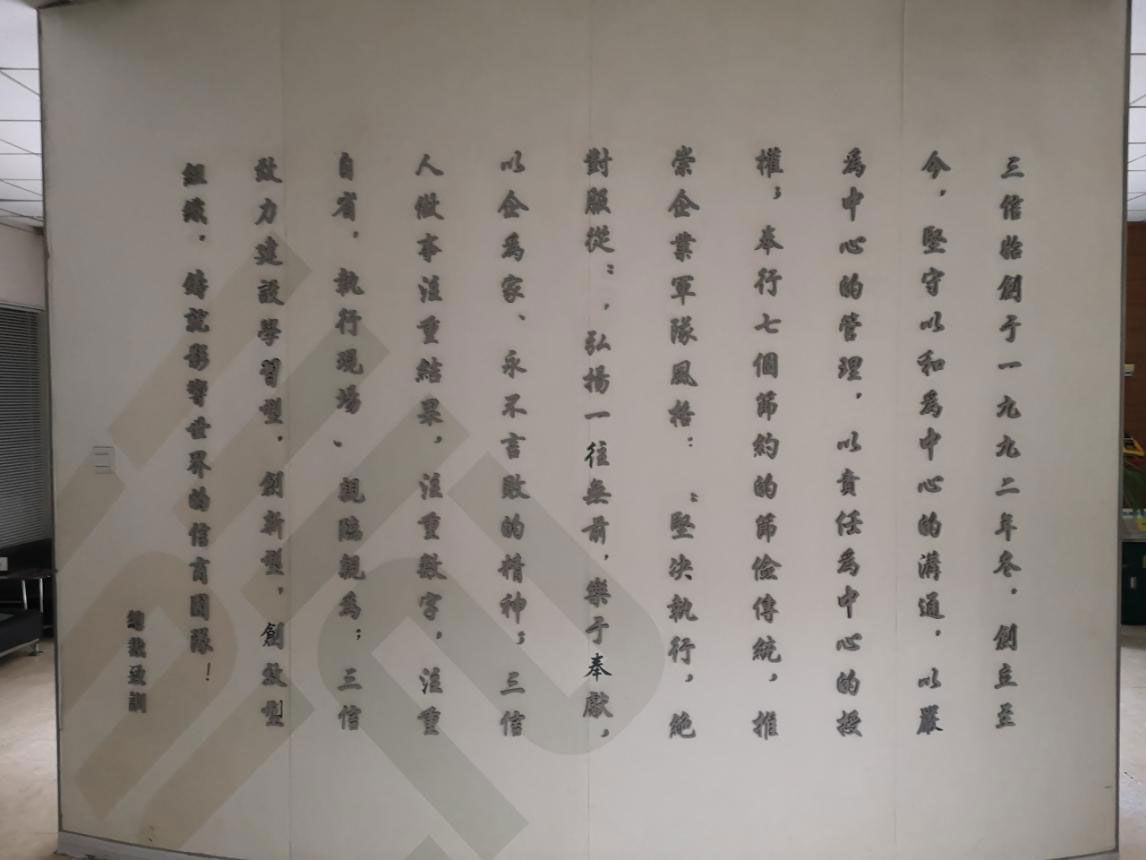 三信始創于一九九二年冬．創立至
今，堅守以和為中心的溝通，以嚴
為中心的管理，以責任為中心的授
權；奉行七個節約的節儉傳統，推
崇企業軍隊風格：“堅決執行，絕
對服從”，弘揚一往無前，樂于奉獻，
以企為家、永不言敗的精神；三信
人做事注重結果，注重數字，注重
自省，執行現場、親臨親為；三信
致力建設學習型，創新型，創效型
組織，鑄就影響世界的信育團隊！
總裁致訓